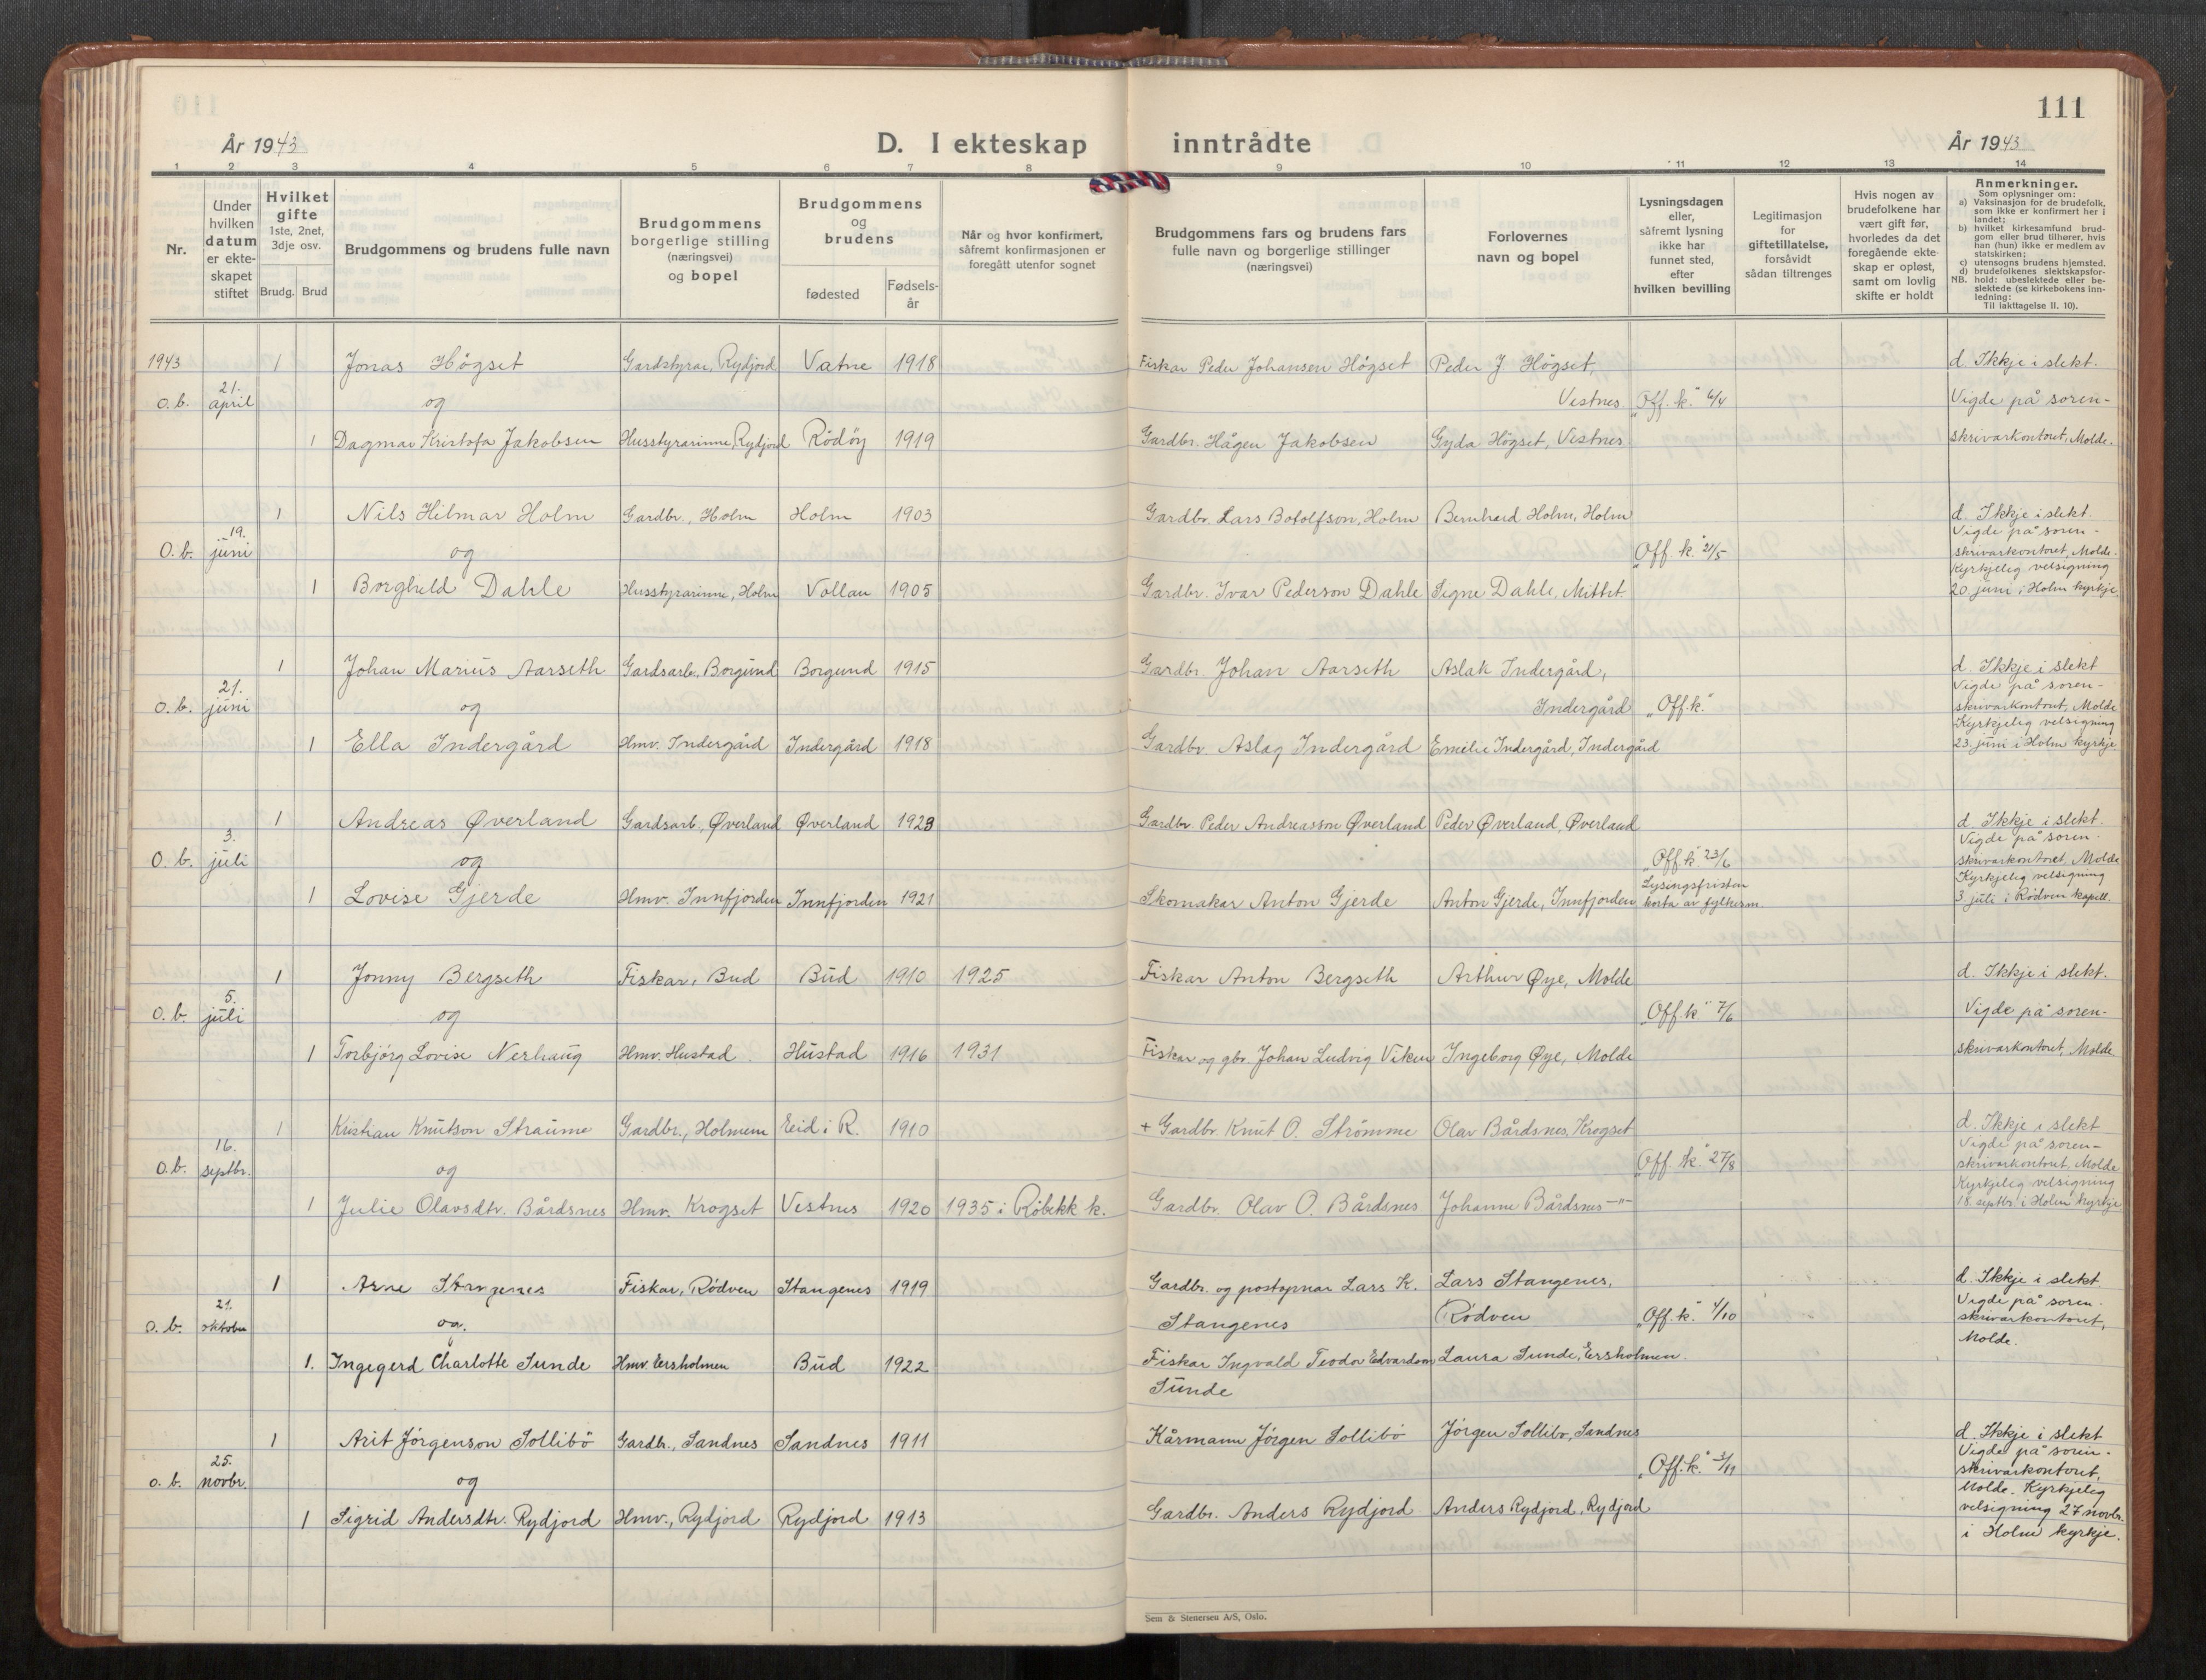 111
År 1943
D. I ekteskap inntrådte
År 1943
1 2 3 4 5 6 7 8 9 10 11 12 13 14
Nr.
Under hvilken datum er ekteskapet stiftet
Hvilket gifte 1ste, 2net, 3dje osv.
Brudg. Brud
Brudgommens og brudens fulle navn
Brudgommens borgerlige stilling (næringsvei) og bopel
Brudgommens og brudens
fødested
Fødsels-år
Når og hvor konfirmert, såfremt konfirmasjonen er foregått utenfor sognet
Brudgommens fars og brudens fars fulle navn og borgerlige stillinger (næringsvei)
Forlovernes navn og bopel
Lysningsdagen eller, såfremt lysning ikke har funnet sted, efter hvilken bevilling
Legitimasjon for giftetillatelse, forsåvidt sådan tiltrenges
Hvis nogen av brudefolkene har vært gift før, hvorledes da det foregående ekteskap er opløst, samt om lovlig skifte er holdt
Anmerkninger.
Som oplysninger om:
a) Vaksinasjon for de brudefolk, som ikke er konfirmert her i landet;
b) hvilket kirkesamfund brudgom eller brud tilhører, hvis han (hun) ikke er medlem av statskirken;
c) utensogns brudens hjemsted.
d) brudefolkenes slektskapsforhold: ubeslektede eller beslektede (se kirkebokens innledning:
NB.
Til iakttagelse II. 10).
1943 1 Jonas Högset Gardstyrar, Rydjord Vatne 1918 Fiskar Peder Johansen Högset Peder J Högset, d. Ikkje i slekt.
o.b. 21. april og Vestnes "Off. k." 6/4 Vigde på soren-
1 Dagmar Kristofa Jakobsen Husstyrarinne, Rydjord Rödöy 1919 Gardbr. Hågen Jakobsen Gyda Högset, Vestnes skrivarkontoret, Molde.
1 Nils Hilmar Holm Gardbr., Holm Holm 1903 Gardbr. Lars Botolfson, Holm Bernhard Holm, Holm d. Ikkje i slekt.
Vigde på soren-
O.b. 19. juni og "Off. k." 21/5 skrivarkontoret, Molde.
Kyrkjeleg velsigning
1 Borghild Dahle Husstyrarinne, Holm Vollan 1905 Gardbr. Ivar Pederson Dahle Signe Dahle, Mittet 20. juni i Holm kyrkje.
1 Johan Marius Aarseth Gardsarb., Borgund Borgund 1915 Gardbr. Johan Aarseth Aslak Indergård, d. Ikkje i slekt
Vigde på soren-
o.b. 21. juni og Indergård "Off.k." skrivarkontoret, Molde
Kyrkjelig velsigning
1 Ella Indergård Hmv. Indergård Indergård 1918 Gardbr. Aslag Indergård Emilie Indergård, Indergård 23. juni i Holm kyrkje
1 Andreas Øverland Gardsarb., Øverland Øverland 1923 Gardbr. Peder Andreasson Øverland Peder Øverland, Øverland d. Ikkje i slekt.
Vigde på soren-
O.b. 3. juli og "Off k." 23/6 skrivarkontoret, Molde
Lysingsfristen Kyrkjelig velsigning
1 Lovise Gjerde Hmv. Innfjorden Innfjorden 1921 Skomakar Anton Gjerde Anton Gjerde, Innfjorden korta av fylkesm. 3. juli i Rødven kapell.
1 Jonny Bergseth Fiskar, Bud Bud 1910 1925 Fiskar Anton Bergseth Arthur Øye, Molde d. Ikkje i slekt.
o.b. 5. juli og "Off k" 7/6 Vigde på soren-
1 Torbjörg Lovise Nerhaug Hmv. Hustad. Hustad 1916 1931 Fiskar og gbr. Johan Ludvig Viken Ingeborg Øye, Molde skrivarkontoret, Molde
1 Kristian Knutson Straume Gardbr., Holmem Eid i R. 1910 + Gardbr. Knut O. Strömme Olav Bårdsnes, Krogset d. Ikkje i slekt
Vigde på soren-
o.b. 16. septbr. og "Off. k." 27/8 skrivarkontoret, Molde
Kyrkjelig velsigning
1 Julie Olavsdtr. Bårdsnes Hmv. Krogset Vestnes 1920 1935 i Röbekk k. Gardbr. Olav O. Bårdsnes Johanne Bårdsnes -"- 18. septbr. i Holm kyrkje
1 Arne Stangenes Fiskar, Rödven Stangenes 1919 Gardbr. og postopnar Lars K. Lars Stangenes, d. Ikkje i slekt
Vigde på soren-
o.b. 21. oktober og. Stangenes Rödven "Off. k." 1/10 skrivarkontoret,
Molde.
1. Ingegerd Charlotte Sunde Hmv. Eersholmen Bud 1922 Fiskar Ingvald Teodor Edvardson Laura Sunde, Eersholmen.
Sunde
1 Arit Jörgenson Sollibö Gardbr., Sandnes Sandnes 1911 Kårmann Jörgen Sollibö Jörgen Sollibö, Sandnes d. Ikkje i slekt
Vigde på soren-
o.b. 25. novbr. og "Off. k." 3/11 skrivarkontoret,
Molde. Kyrkjelig
1 Sigrid Andersdtr. Rydjord Hmv., Rydjord Rydjord 1913 Gardbr. Anders Rydjord Anders Rydjord, Rydjord velsigning 27 novbr.
i Holm kyrkje.
Sem & Stenersen A/S, Oslo.